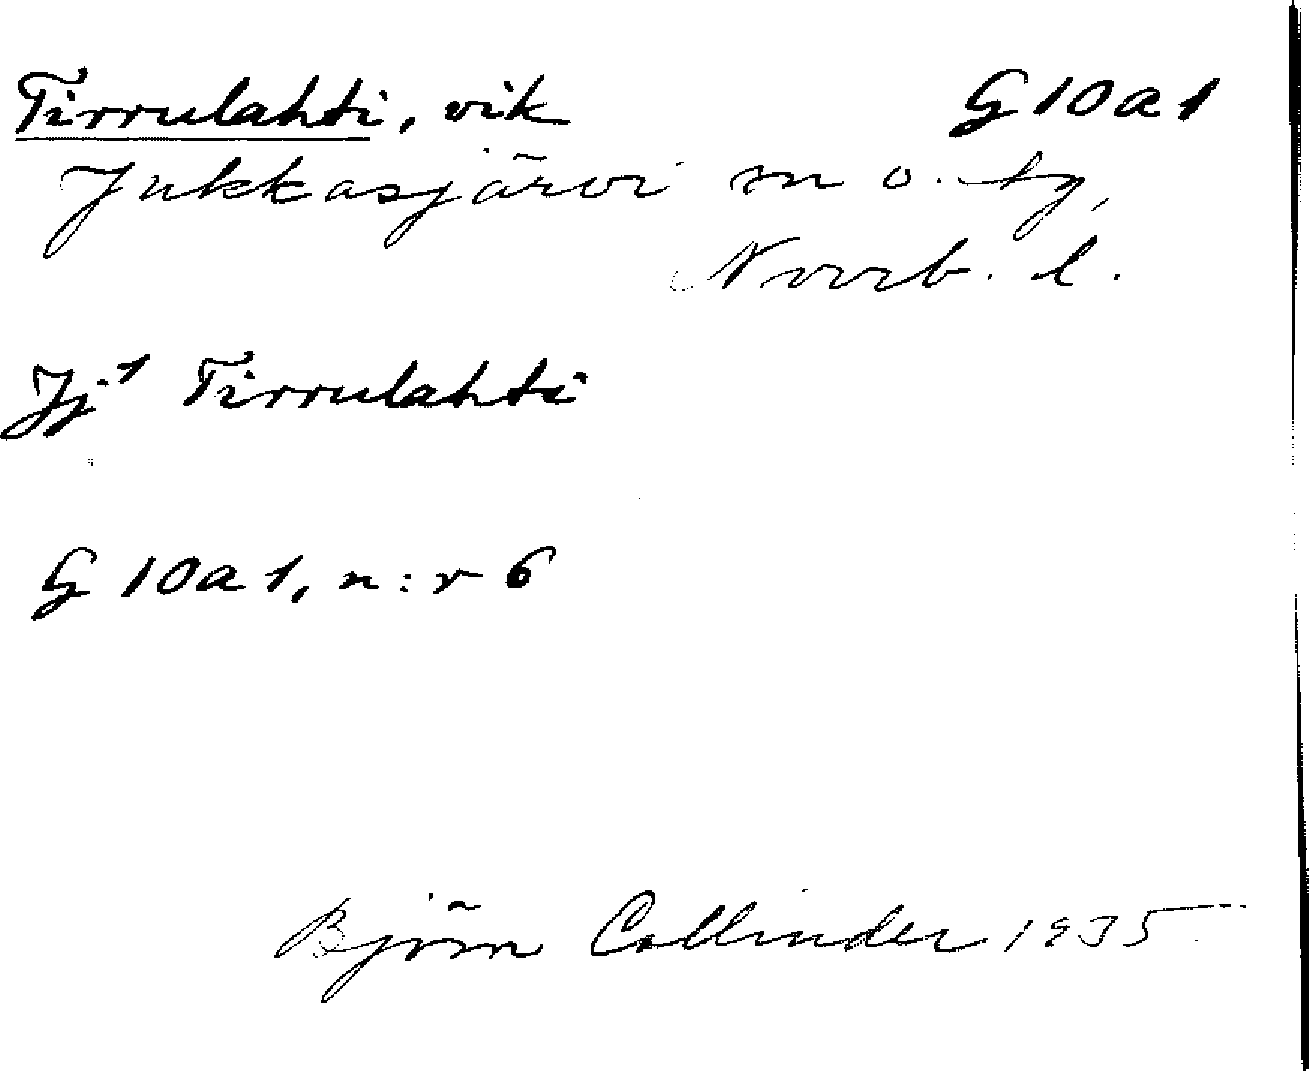 Tirrulahti, vik G 10 a 1
Jukkasjärvi sn o. tg,
Norrb. l.
Jj¹ Tirrulahti
G 10 a 1, n:r 6
Björn Collinder 1935